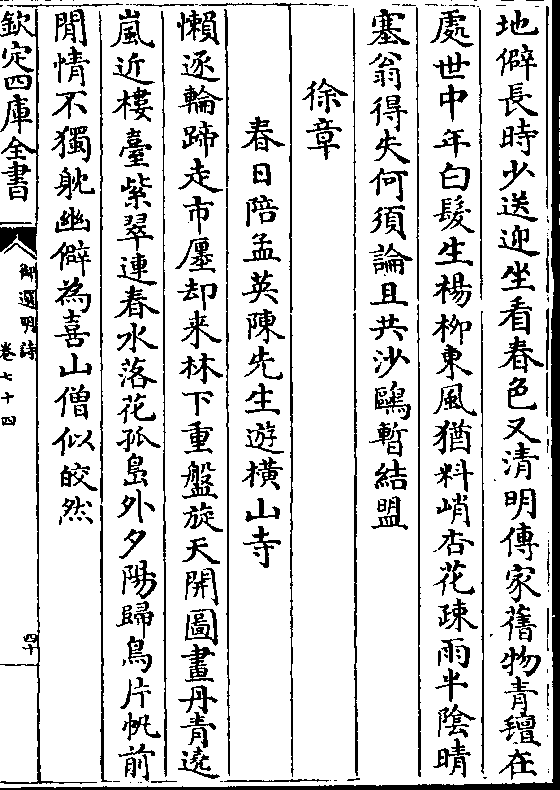 地僻長時少送迎坐看春色又清明傳家舊物青氊在
處世中年白髮生楊柳東風猶料峭杏花疎雨半陰晴
塞翁得失何須論且共沙鷗暫結盟
徐章
春日陪孟英陳先生遊橫山寺
懶逐輪蹄走市廛却来林下重盤旋天開圖畫丹青遶
嵐近樓臺紫翠連春水落花孤島外夕陽歸鳥片帆前
閒情不獨躭幽僻為喜山僧似皎然
欽定四庫全書
御選明詩
卷七十四
四十